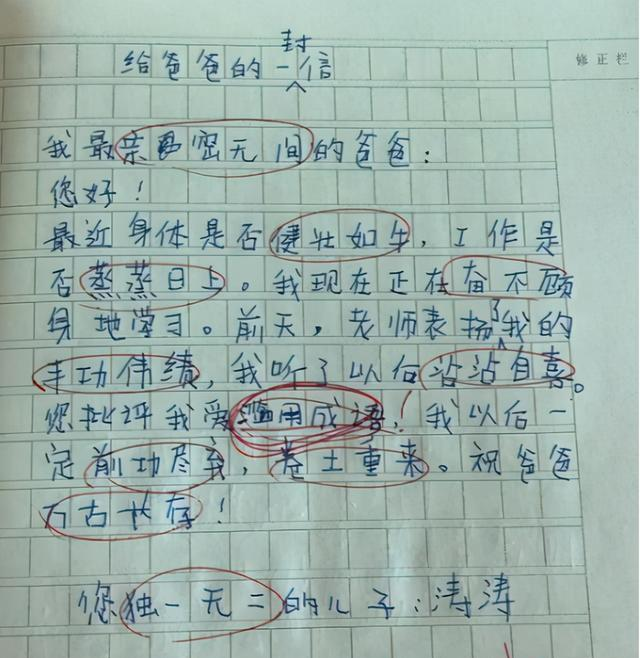 给爸爸的一封信
修正栏
我最亲密无间的爸爸：
您好！
最近身体是否健壮如牛，工作是
否蒸蒸日上。我现在正在奋不顾
身地学习。前天，老师表扬了我的
丰功伟绩，我听了以后沾沾自喜。
您批评我爱滥用成语，我以后一
定前功尽弃，卷土重来。祝爸爸
万古长存！
您独一无二的儿子：涛涛